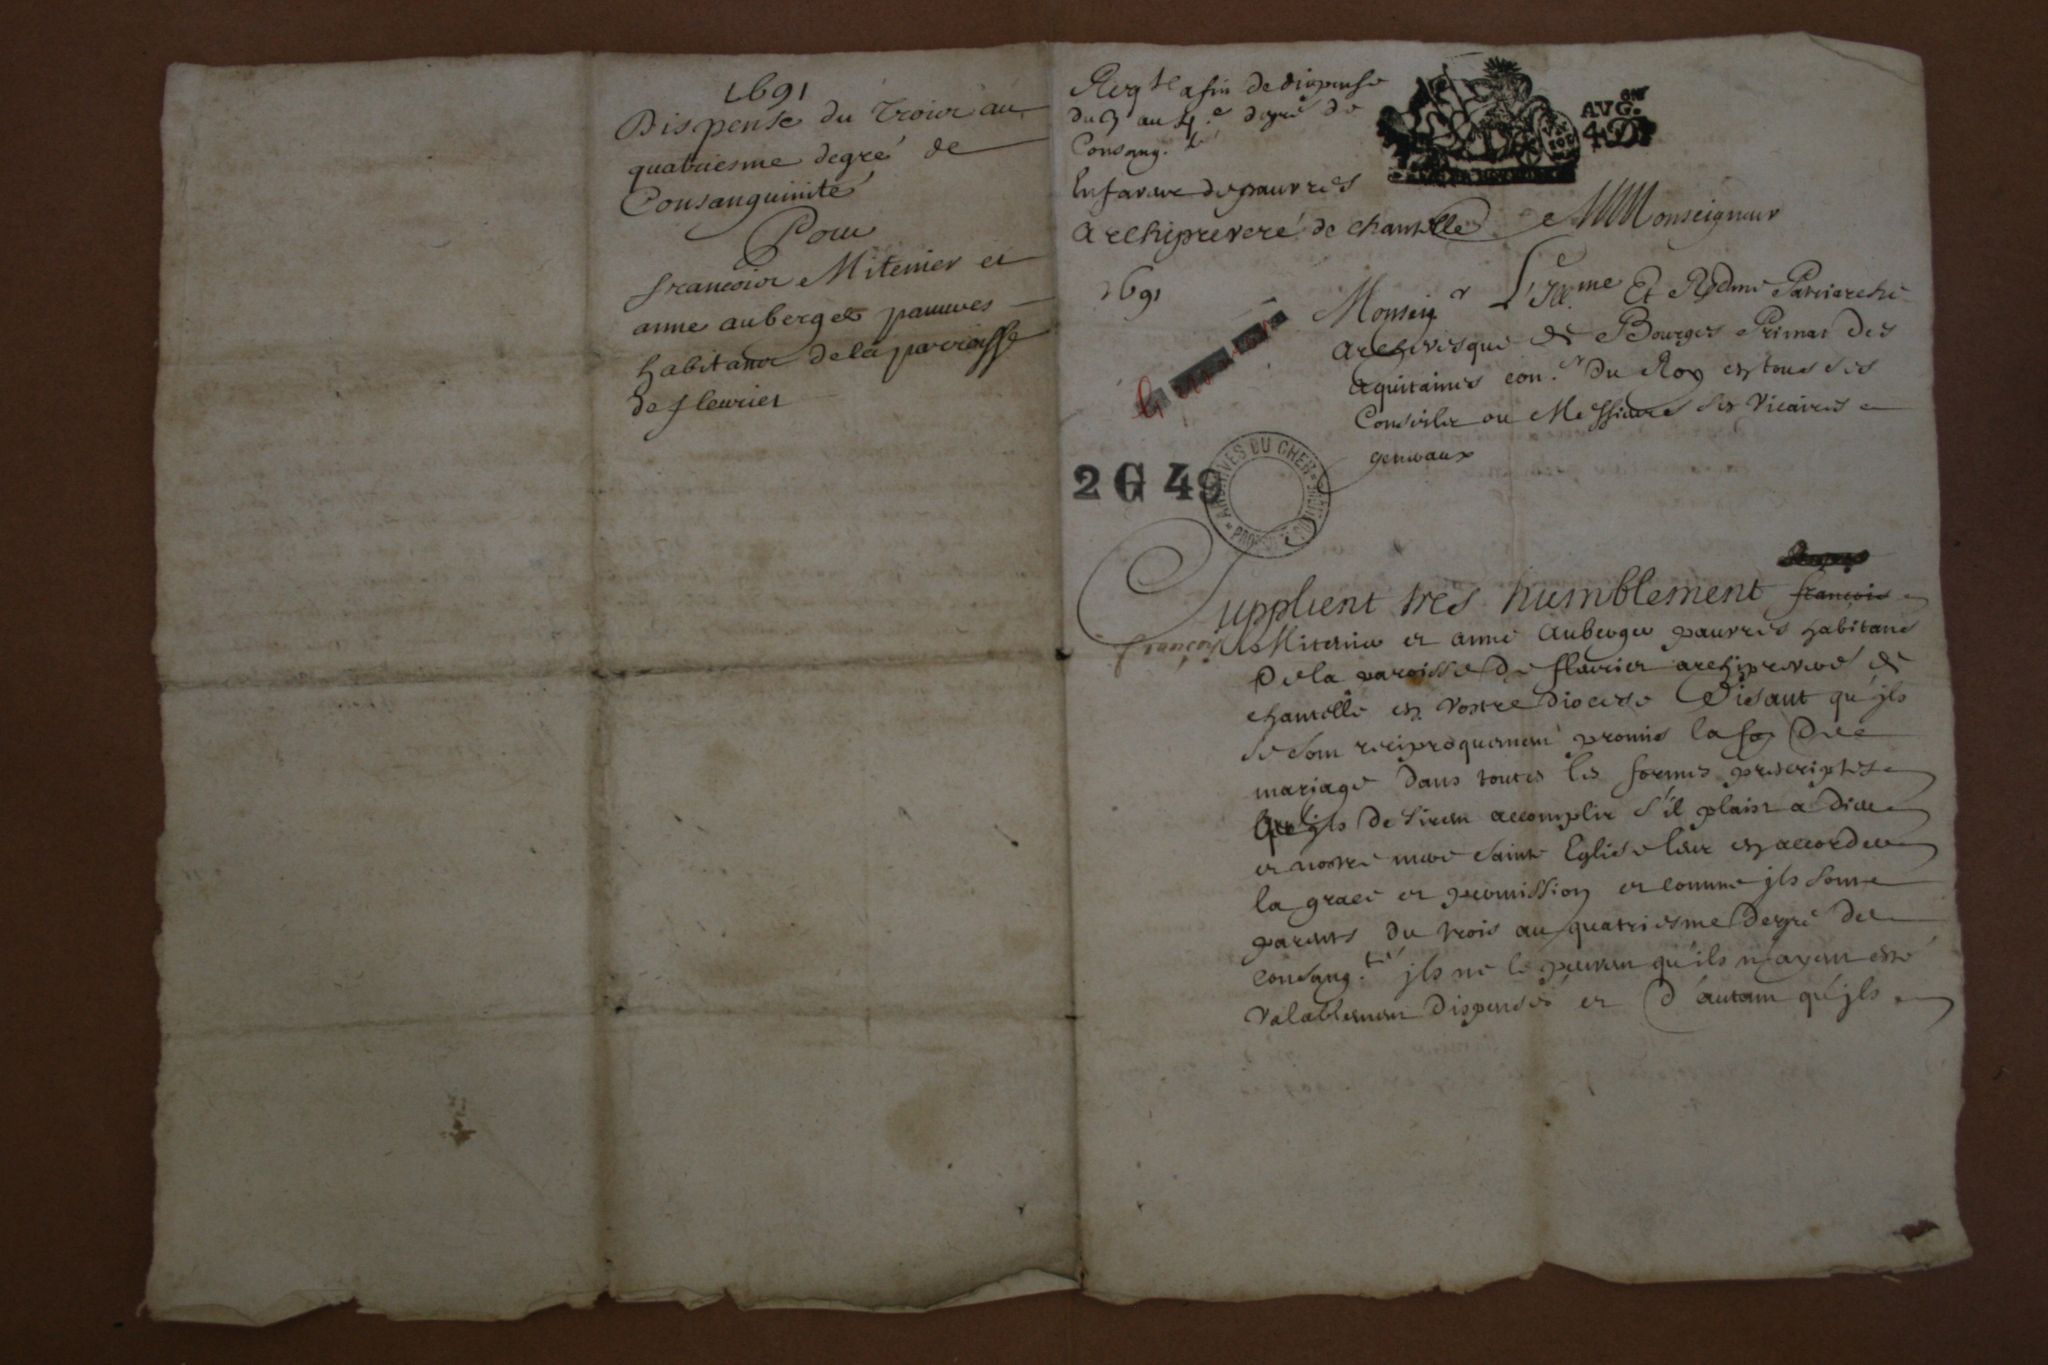 1691
Dispense du Troisr au
quatriesme degré de
Consanguinité
Pour
francoisr Mitenier et
anne auberger pauures
habitansr de la parroisse
de fleuriet
Reqte afin de dispense
du 3 au 4.e degré de
Consang.té
En faveur de pauvres
Archipreveré de chantelle
1691
AVG.on
4 D
Monseigneur
Monseigr L'Illme Et Rydme Patriarche
archevesque de Bourges Primat des
aquitaines con.er Du Roy en tous ses
Conseils ou Messieurs ses Vicaires
generaux
2 G 49
ARCHIVES DU CHER
Supplient tres humblement francois
francois Mitenier et anne Auberger pauvres habitans
De la paroisse de fleurier archipreveré de
chantelle en vostre diocese Disant qu'jls
se sont reciproquement promis la foy De
mariage dans toutes les formes prescriptes
Qu'jls desirent accomplir s'il plaist a dieu
et nostre mere sainte Eglise leur en accorder
la grace et permission et comme jls sont
parents du trois au quatriesme degré de
consang.té jls ne le peuvent qu'ils n'ayent esté
valablement dispensés et D'autant qu'jls